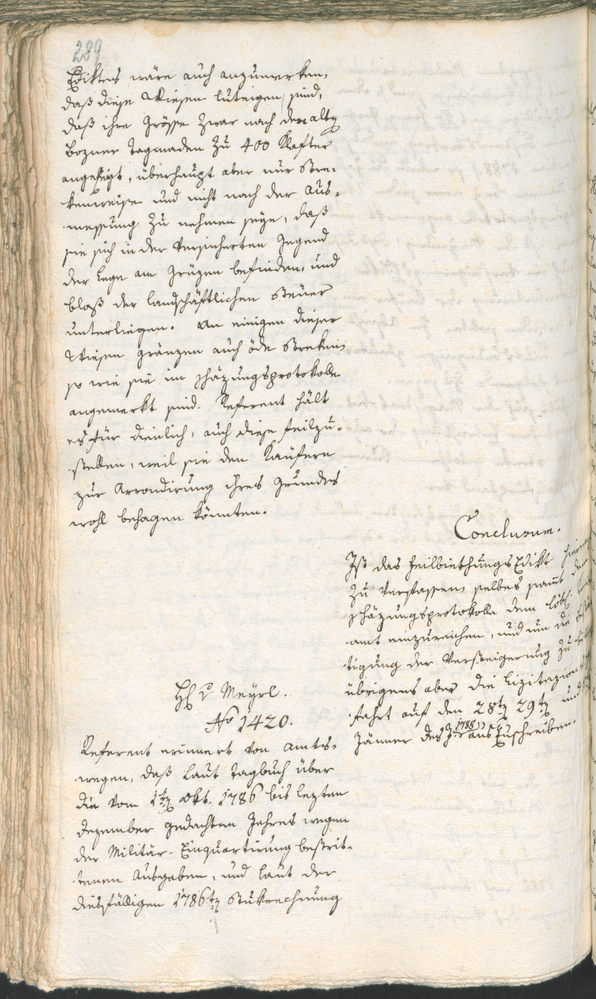 289
Ediktes wäre auch anzumerken,
daß diese Wiesen luteigen sind,
daß ihre Größe zwar nach den alten
Bozner Tagmaden zu 400 Klafter
angesezt, überhaupt aber nur Stre-
kenweise und nicht nach der Aus-
messung zu nehmen seye, daß
sie sich in der versicherten Gegend
der Lege am Gräzen befinden, und
bloß der landschäftlichen Steuer
unterliegen. An einigen dieser
Wiesen gränzen auch öde Streken,
so wie sie im Schäzungsprotokolle
angemerkt sind. Referent hält
es für dienlich, auch diese feilzu-
stellen, weil sie den Käufern
zur Arrondirung ihres Grundes
wohl behagen könnten.
Conclusum.
Ist das Feilbiethungs Edikt
zu verfassen, selbes samt
Schäzungsprotokolle dem löbl.
amt einzureichen, und um die
tigung der Versteigerung zu
übrigens aber die Lizitazion
fahrt auf den 28ten 29ten und
Jänner des J. 1788 auszuschreiben.
H. v. Meyrl.
No 1420.
Referent erinnert von Amts-
wegen, daß laut Tagbuch über
die vom 1ten Okt. 1786 bis lezten
Dezember gedachten Jahres wegen
der Militär-Einquartirung bestrit-
tenen Ausgaben, und laut der
diesfälligen 1786ten Steurrechnung